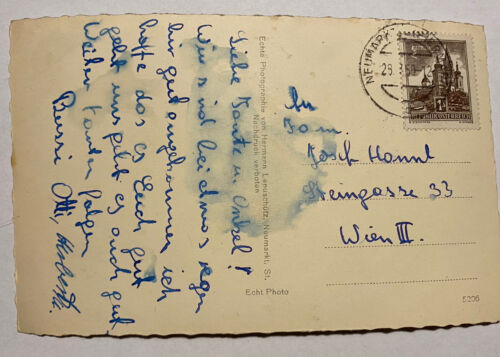 Liebe Tante u. Onkel!
Wir sind bei etwas regen
hir gut angekommen ich
hoffe das es Euch gut
geht uns geht es auch gut.
Weitere Karten folgen
Bussi Otti,
Echte Photographie von Hermann Landschütz, Neumarkt, St.
Nachdruck verboten
Echt Photo
NEUMARKT
REPUBLIK ÖSTERREICH
An
Fam.
Josef
Steingasse 33
Wien III.
5206